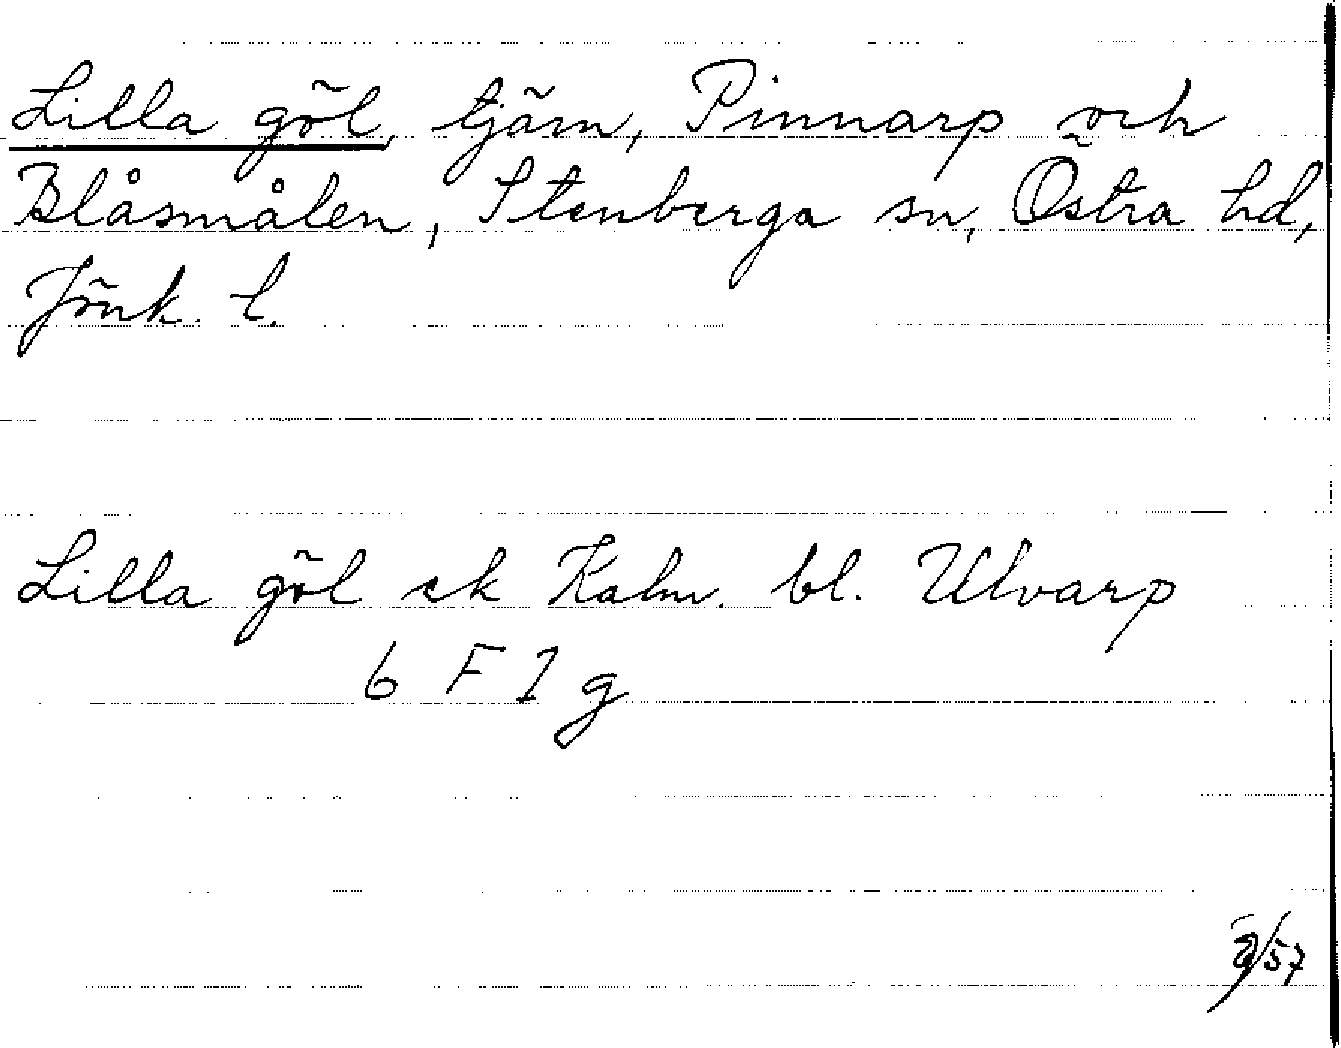 Lilla göl, tjärn, Pinnarp och
Blåsmålen, Stenberga sn, Östra hd,
Jönk. l.
Lilla göl ek Kalm. bl. Ulvarp
6 F 1 g
/57